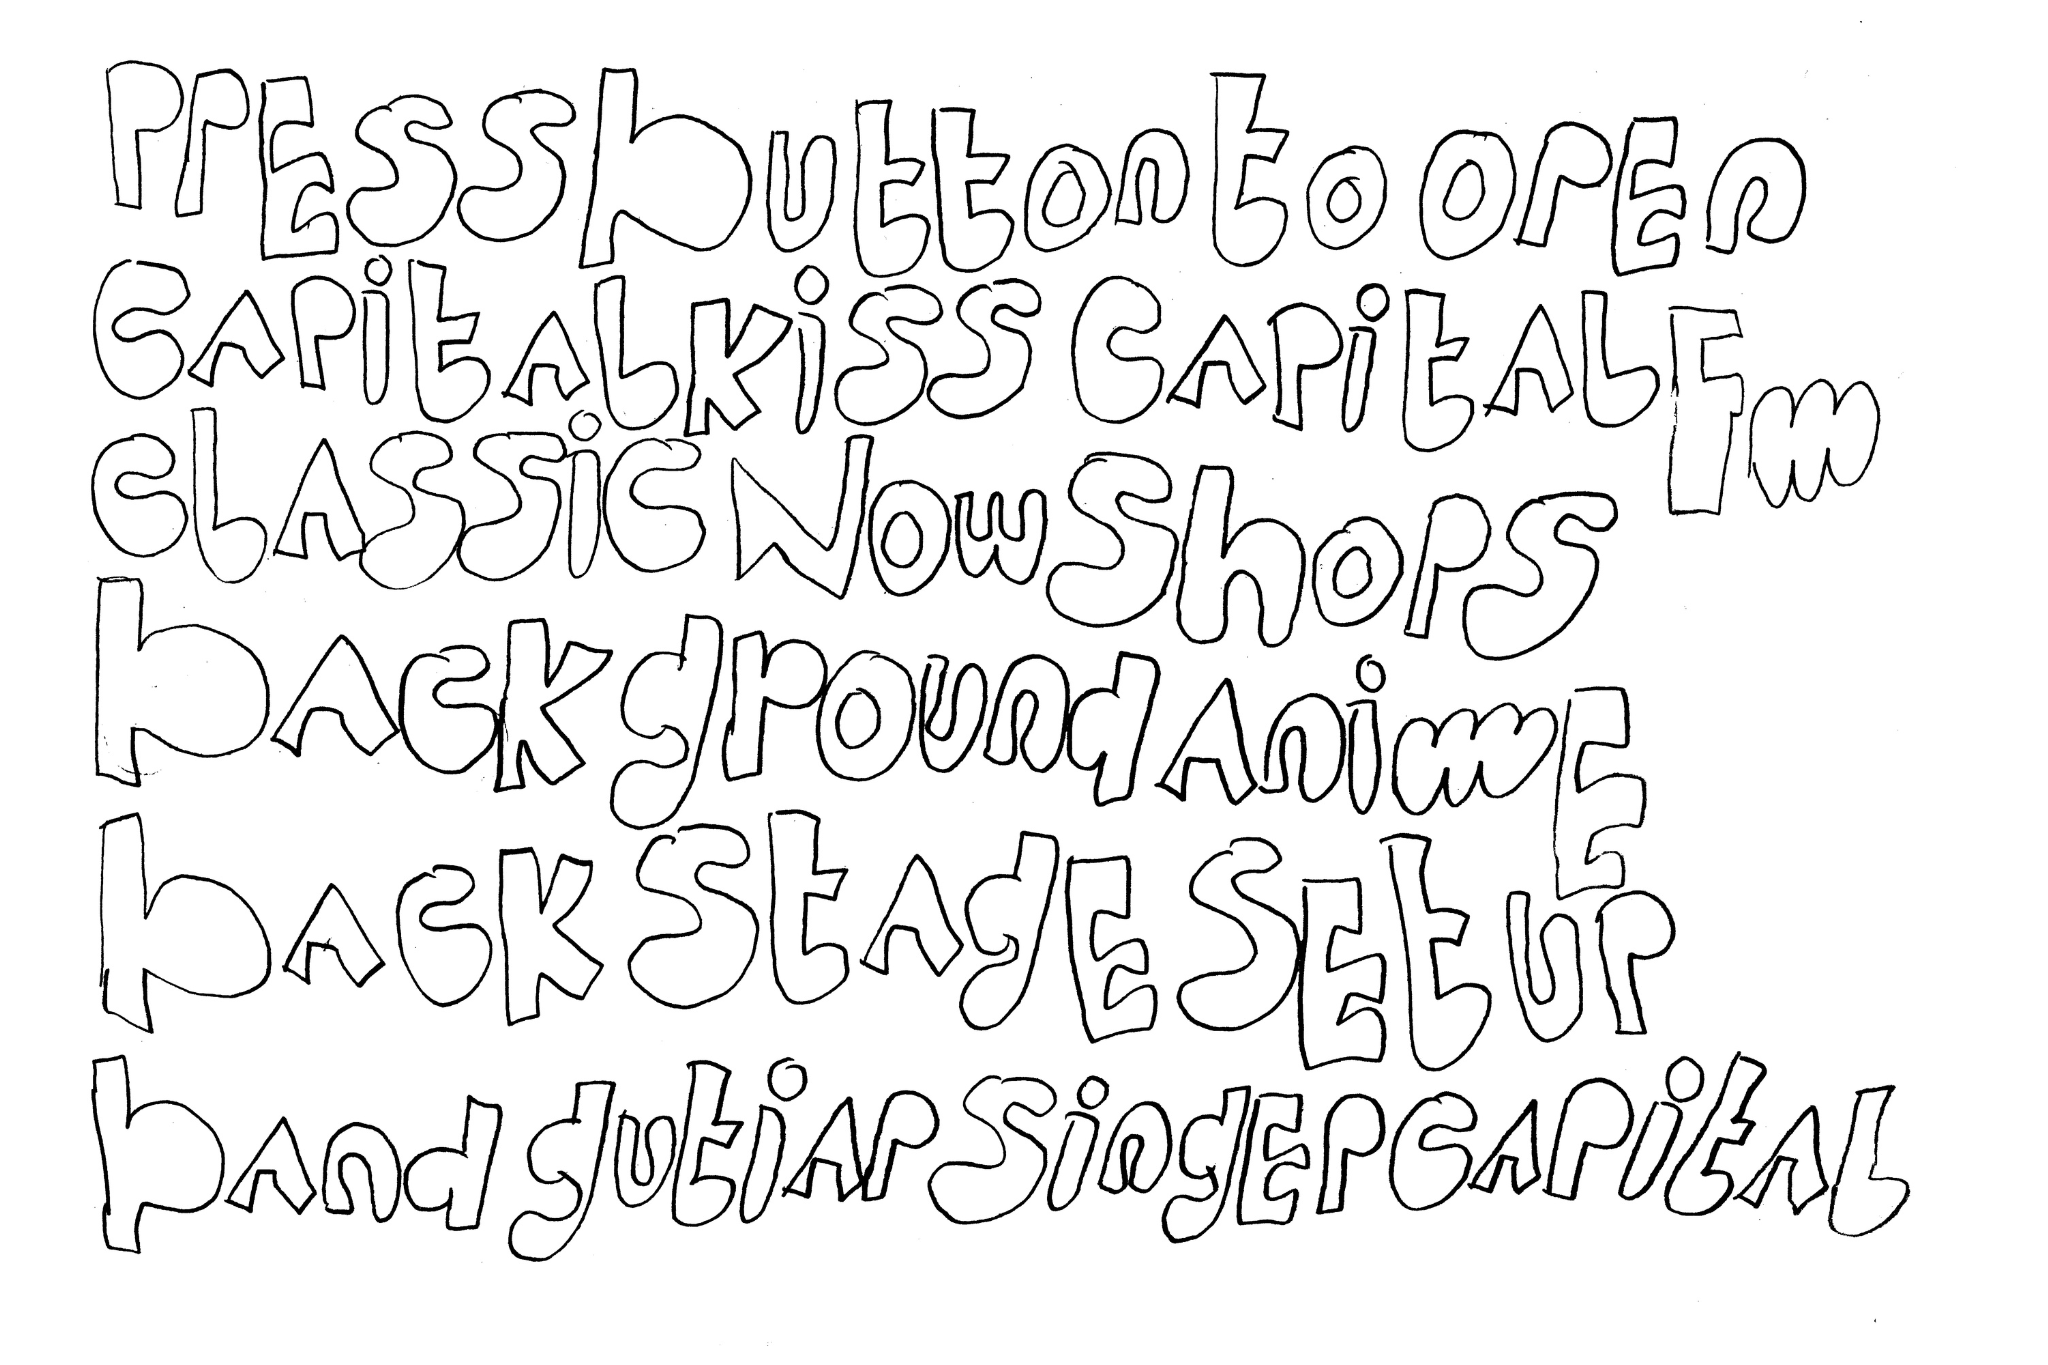 PrESS button to OPEn
CAPitAL KiSS CAPitAL Fm
CLASSiC Now ShoPS
bACK ground AnimE
bACK StAgE SEt uP
bAnd gutiAr SingEr CAPitAL